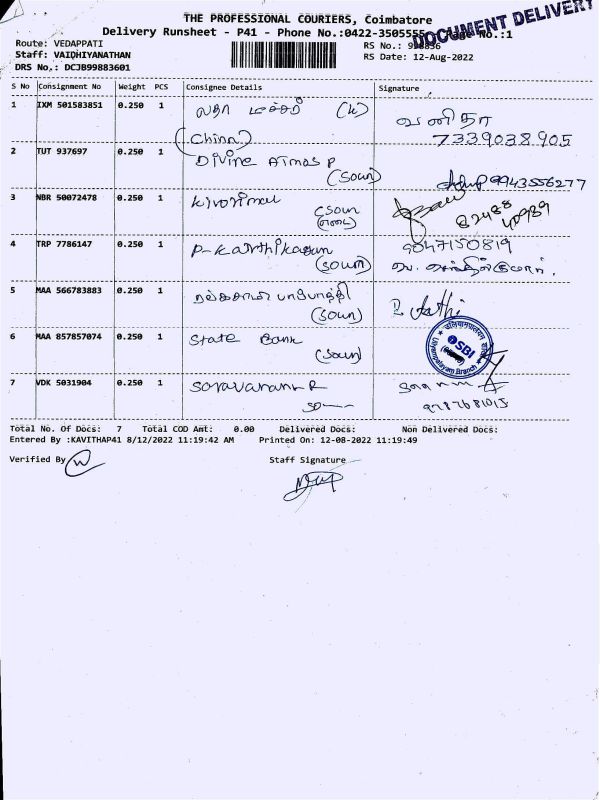 THE PROFESSIONAL COURIERS, Coimbatore
DOCUMENT DELIVERY
Delivery Runsheet - P41 - Phone No.:0422-3505555 Page No.:1
Route: VEDAPPATI
RS No.: 998836
Staff: VAIDHIYANATHAN
RS Date: 12-Aug-2022
DRS No.: DCJB99883601
S No Consignment No Weight PCS Consignee Details Signature
1 IXM 501583851 0.250 1 லதா டீச்சர் (k) வனிதா
(China) 7339038905
2 TUT 937697 0.250 1 Divine Atmas P
(Soun) 9943556277
3 NBR 50072478 0.250 1
(Soun 82488
40939
4 TRP 7786147 0.250 1 P-Karthikagun 9047150819
(Soun)
5 MAA 566783883 0.250 1
(Soun)
6 MAA 857857074 0.250 1 State Bank SBI
(Soun) Branch
7 VDK 5031904 0.250 1 Saravanan R
9787681015
Total No. Of Docs: 7 Total COD Amt: 0.00 Delivered Docs: Non Delivered Docs:
Entered By :KAVITHAP41 8/12/2022 11:19:42 AM Printed On: 12-08-2022 11:19:49
Verified By Staff Signature